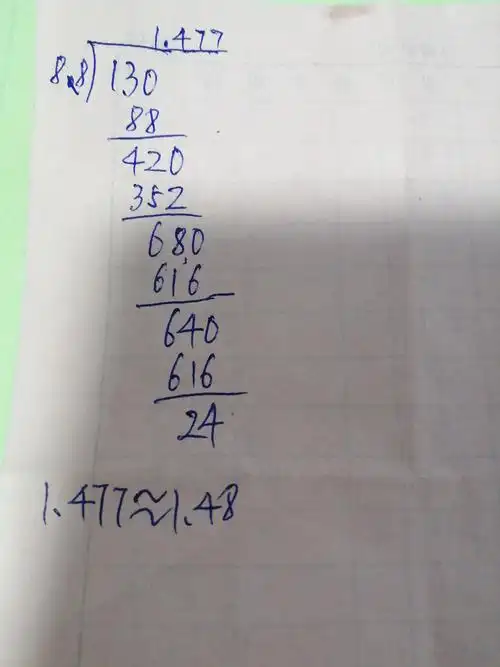 1.477
8.8 130
88
420
352
680
616
640
616
24
1.477≈1.48